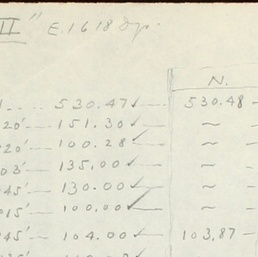 II" E.1618
N.
530.47✓ 530.48 -
20' 151.30✓ ~
20' 100.28✓ ~
03' 135.00✓ ~
45' 130.00✓ ~
015' 100.00✓ ~
45' 104.00✓ 103.87 -